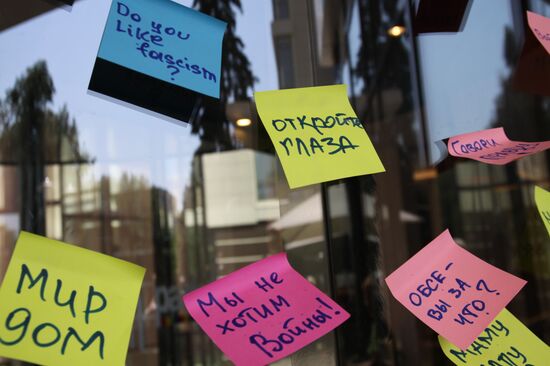 Do you
like
fascism
?
ОТКРОЙТЕ
ГЛАЗА
Говори
Мир
дом
Мы не
хотим
Войны!
ОБСЕ-
ВЫ ЗА
ЧТО?
МАМУ